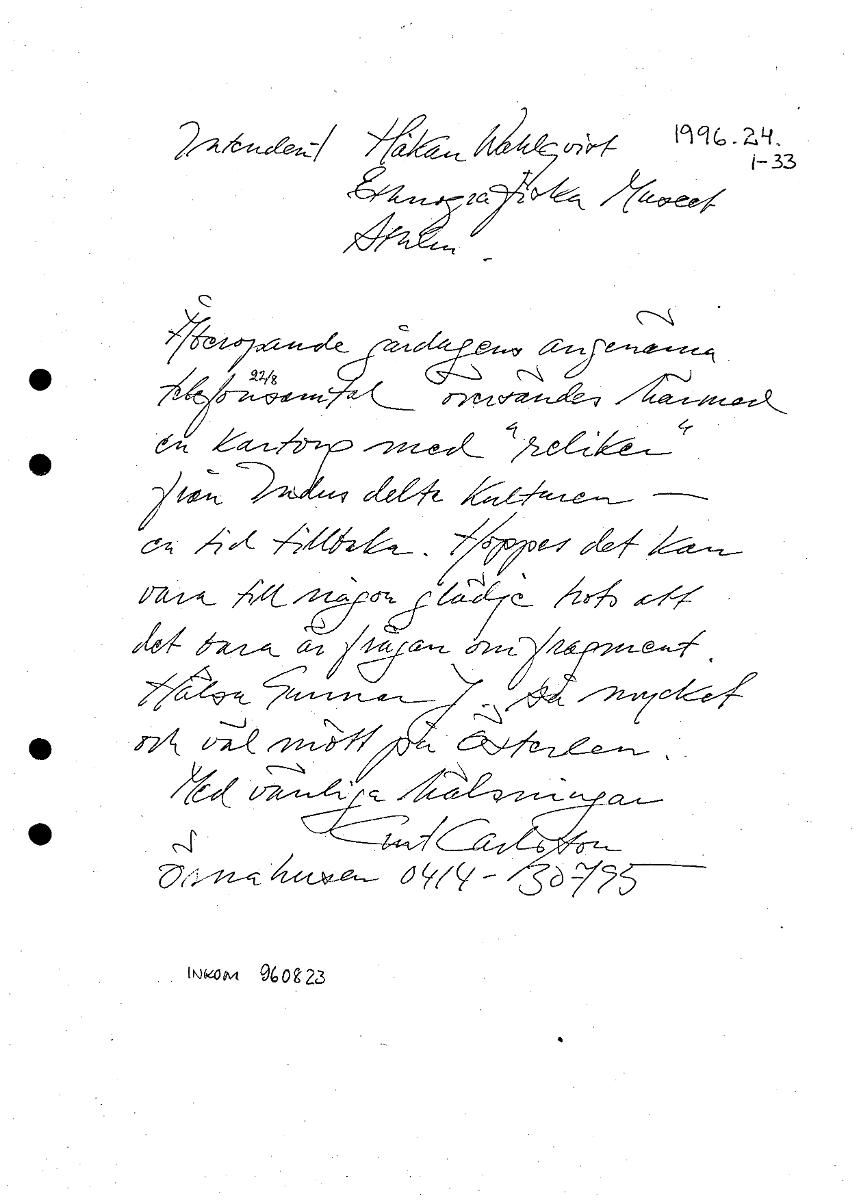 Intendent Håkan Wahlqvist 1996.24.
1-33
Etnografiska Museet
Sthlm.
Återopande gårdagens angenäma
22/8
telefonsamtal översändes härmed
en kartong med "reliker"
från Indus delta kulturen —
en tid tillbaka. Hoppas det kan
vara till någon glädje trots att
det bara är frågan om fragment.
Hälsa Gunnar J. så mycket
och väl mött på Österlen.
Med vänliga hälsningar
Curt Carlsson
Örnahusen 0414-30795
INKOM 960823